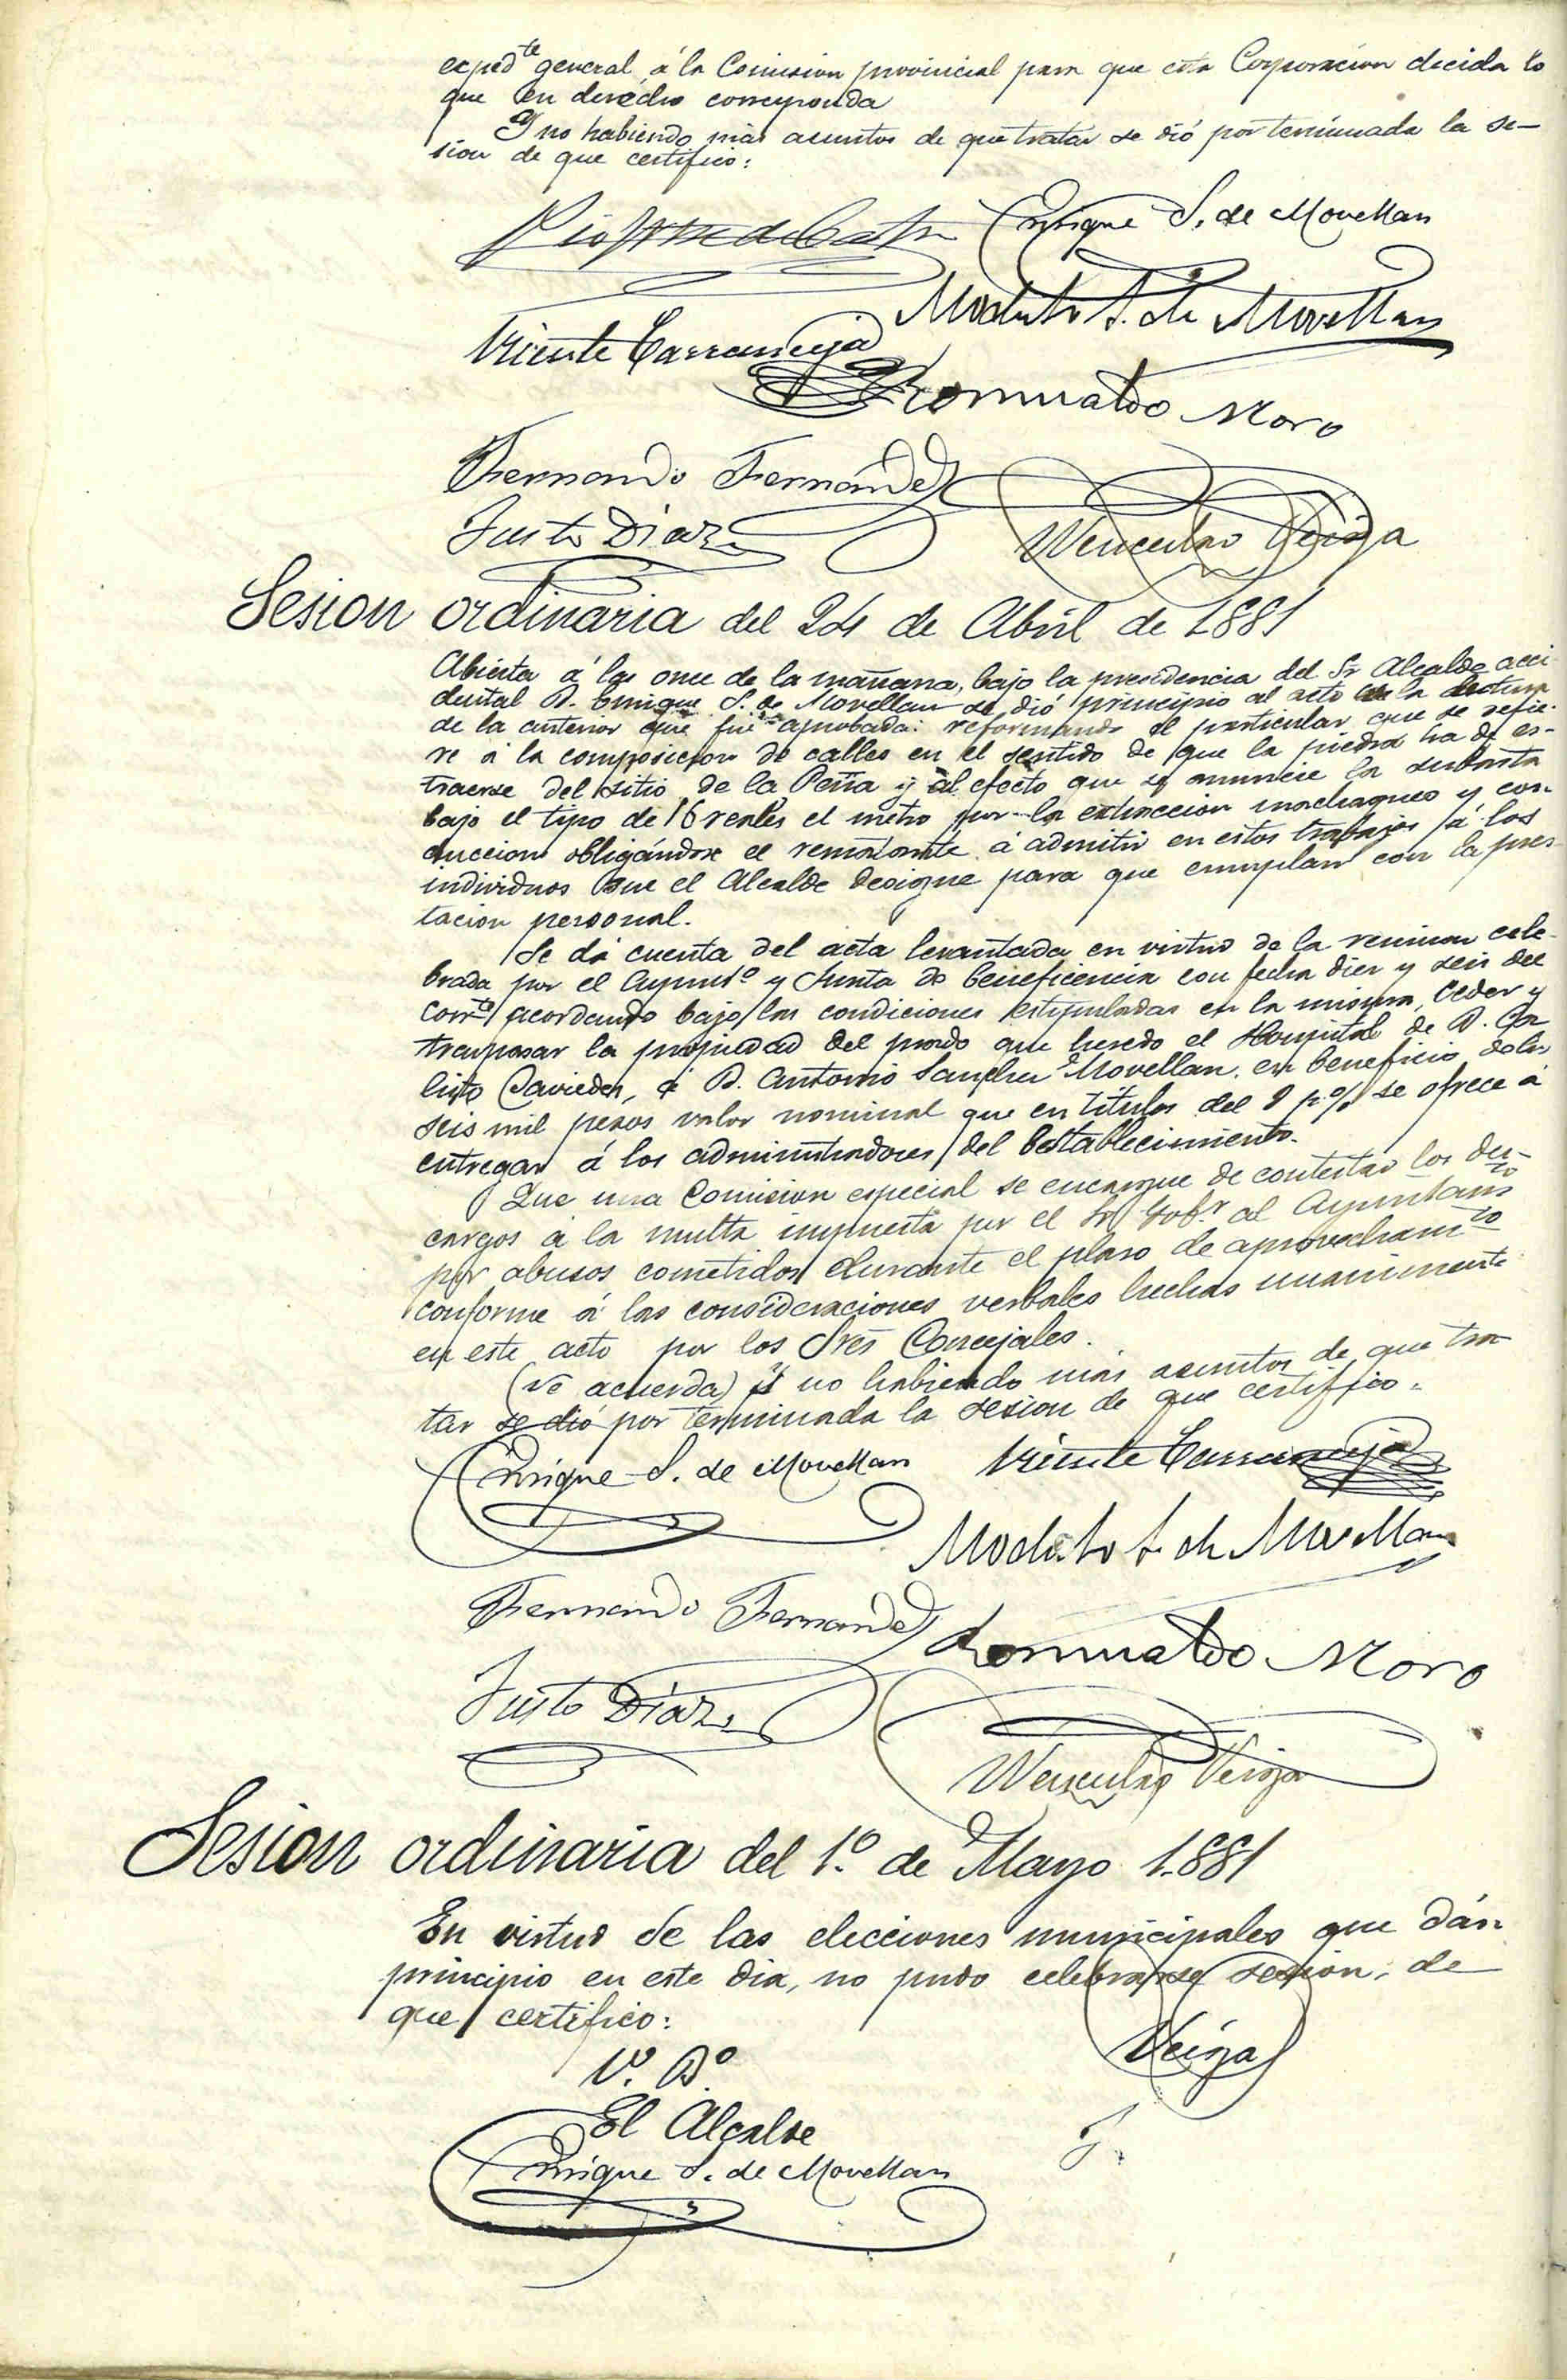 exped.te general, á la Comision provincial para que esta Corporacion decida lo
que en derecho corresponda
Y no habiendo más asuntos de que tratar se dió por terminada la se-
sion de que certifico:
Enrique S. de Movellan
Modesto S. de Movellan
Vicente Carranceja
Romualdo Moro
Fernando Fernandez
Justo Diaz
Wenceslao Veiga
Sesion ordinaria del 24 de Abril de 1881
Abierta á las once de la mañana, bajo la presidencia del Sr Alcalde acci-
dental D. Enrique S. de Movellan se dió principio al acto la lectura
de la anterior que fué aprobada: reformando el particular que se refie-
re á la composicion de calles en el sentido de que la piedra ha de es-
traerse del sitio de la Peña y al efecto que se anuncie la subasta
bajo el tipo de 16 reales el metro por la extraccion machaqueo y con-
duccion obligándose el rematante á admitir en estos trabajos á los
individuos que el Alcalde designe para que cumplan con la pres-
tacion personal.
Se dá cuenta del acta levantada en virtud de la reunion cele-
brada por el Ayunt.º y Junta de beneficencia con fecha diez y seis del
corr.te acordando bajo las condiciones estipuladas en la misma, ceder y
traspasar la propiedad del prado que heredo el Hospital de D. Ca-
listo Cavieder, á D. Antonio Sanchez Movellan, en beneficio de los
seis mil pesos valor nominal que en títulos del p.% se ofrece á
entregar á los administradores del Establecimiento.
Que una Comision especial se encargue de contestar los des-
cargos á la multa impuesta por el Sr Gob.r al Ayuntam.to
por abusos cometidos durante el plaso de aprovecham.to
conforme á las consideraciones verbales hechas unanimemente
en este acto por los Sres Concejales.
(se acuerda) Y no habiendo más asuntos de que tra-
tar se dió por terminada la sesion de que certifico.
Enrique S. de Movellan Vicente Carranceja
Modesto S. de Movellan
Fernando Fernandez
Romualdo Moro
Justo Diaz
Wenceslao Veiga
Sesion ordinaria del 1.º de Mayo 1.881
En virtud de las elecciones municipales que dán
principio en este dia, no pudo celebrarse sesion, de
que certifico:
Veiga
V.º B.º
El Alcalde
Enrique S. de Movellan